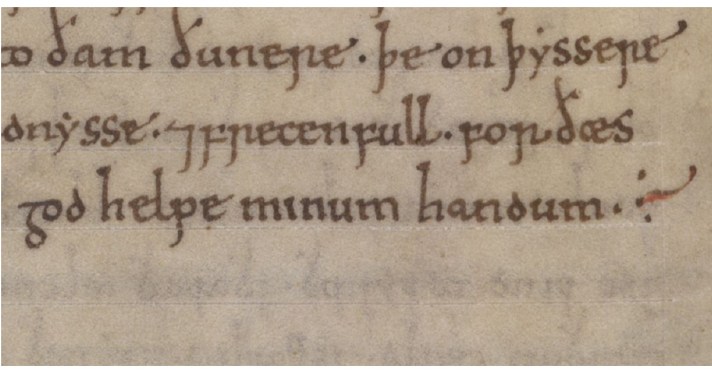 to ðam ðunere. þe on þẏssere
dnẏsse. ⁊ frecenfull. for ðæs
god helpe minum handum.